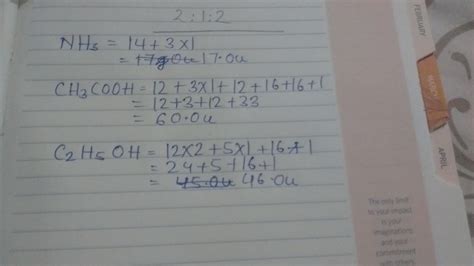 2:1:2
NH3 = 14+3×1
= 17g0u 17.0u
CH3COOH = 12+3×1+12+16+16+1
= 12+3+12+33
= 60.0u
C2H5OH = 12×2+5×1+16+1
= 24+5+16+1
= 45.0u 46.0u
FEBRUARY
APRIL
The only limit
to your impact
is your
imaginations
and your
commitment
with others